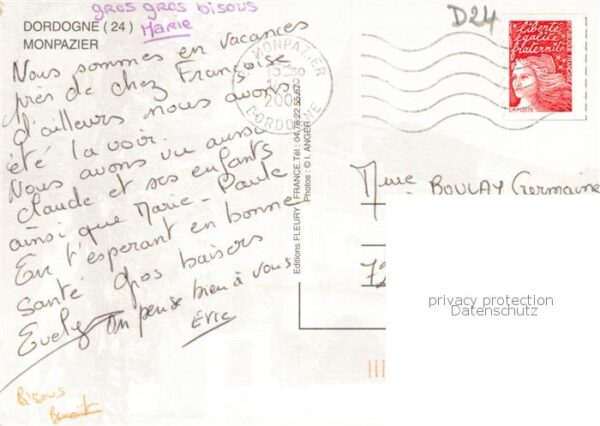 gros gros bisous
Marie
DORDOGNE (24)
MONPAZIER
Nous sommes en vacances
près de chez Françoise
d'ailleurs nous avons
été la voir.
Nous avons vu aussi
Claude et ses enfants
ainsi que Marie-Paule
En t'esperant en bonne
santé Gros baisers
Evelyne On pense bien à vous
Eric
Bisous
Benoit
Editions FLEURY - FRANCE Tél : 04.78.22.55.67
Photos : © I. ANGER
MONPAZIER
DORDOGNE
D24
liberté
égalité
fraternité
LA POSTE
Mme BOULAY Germaine
72
privacy protection
Datenschutz